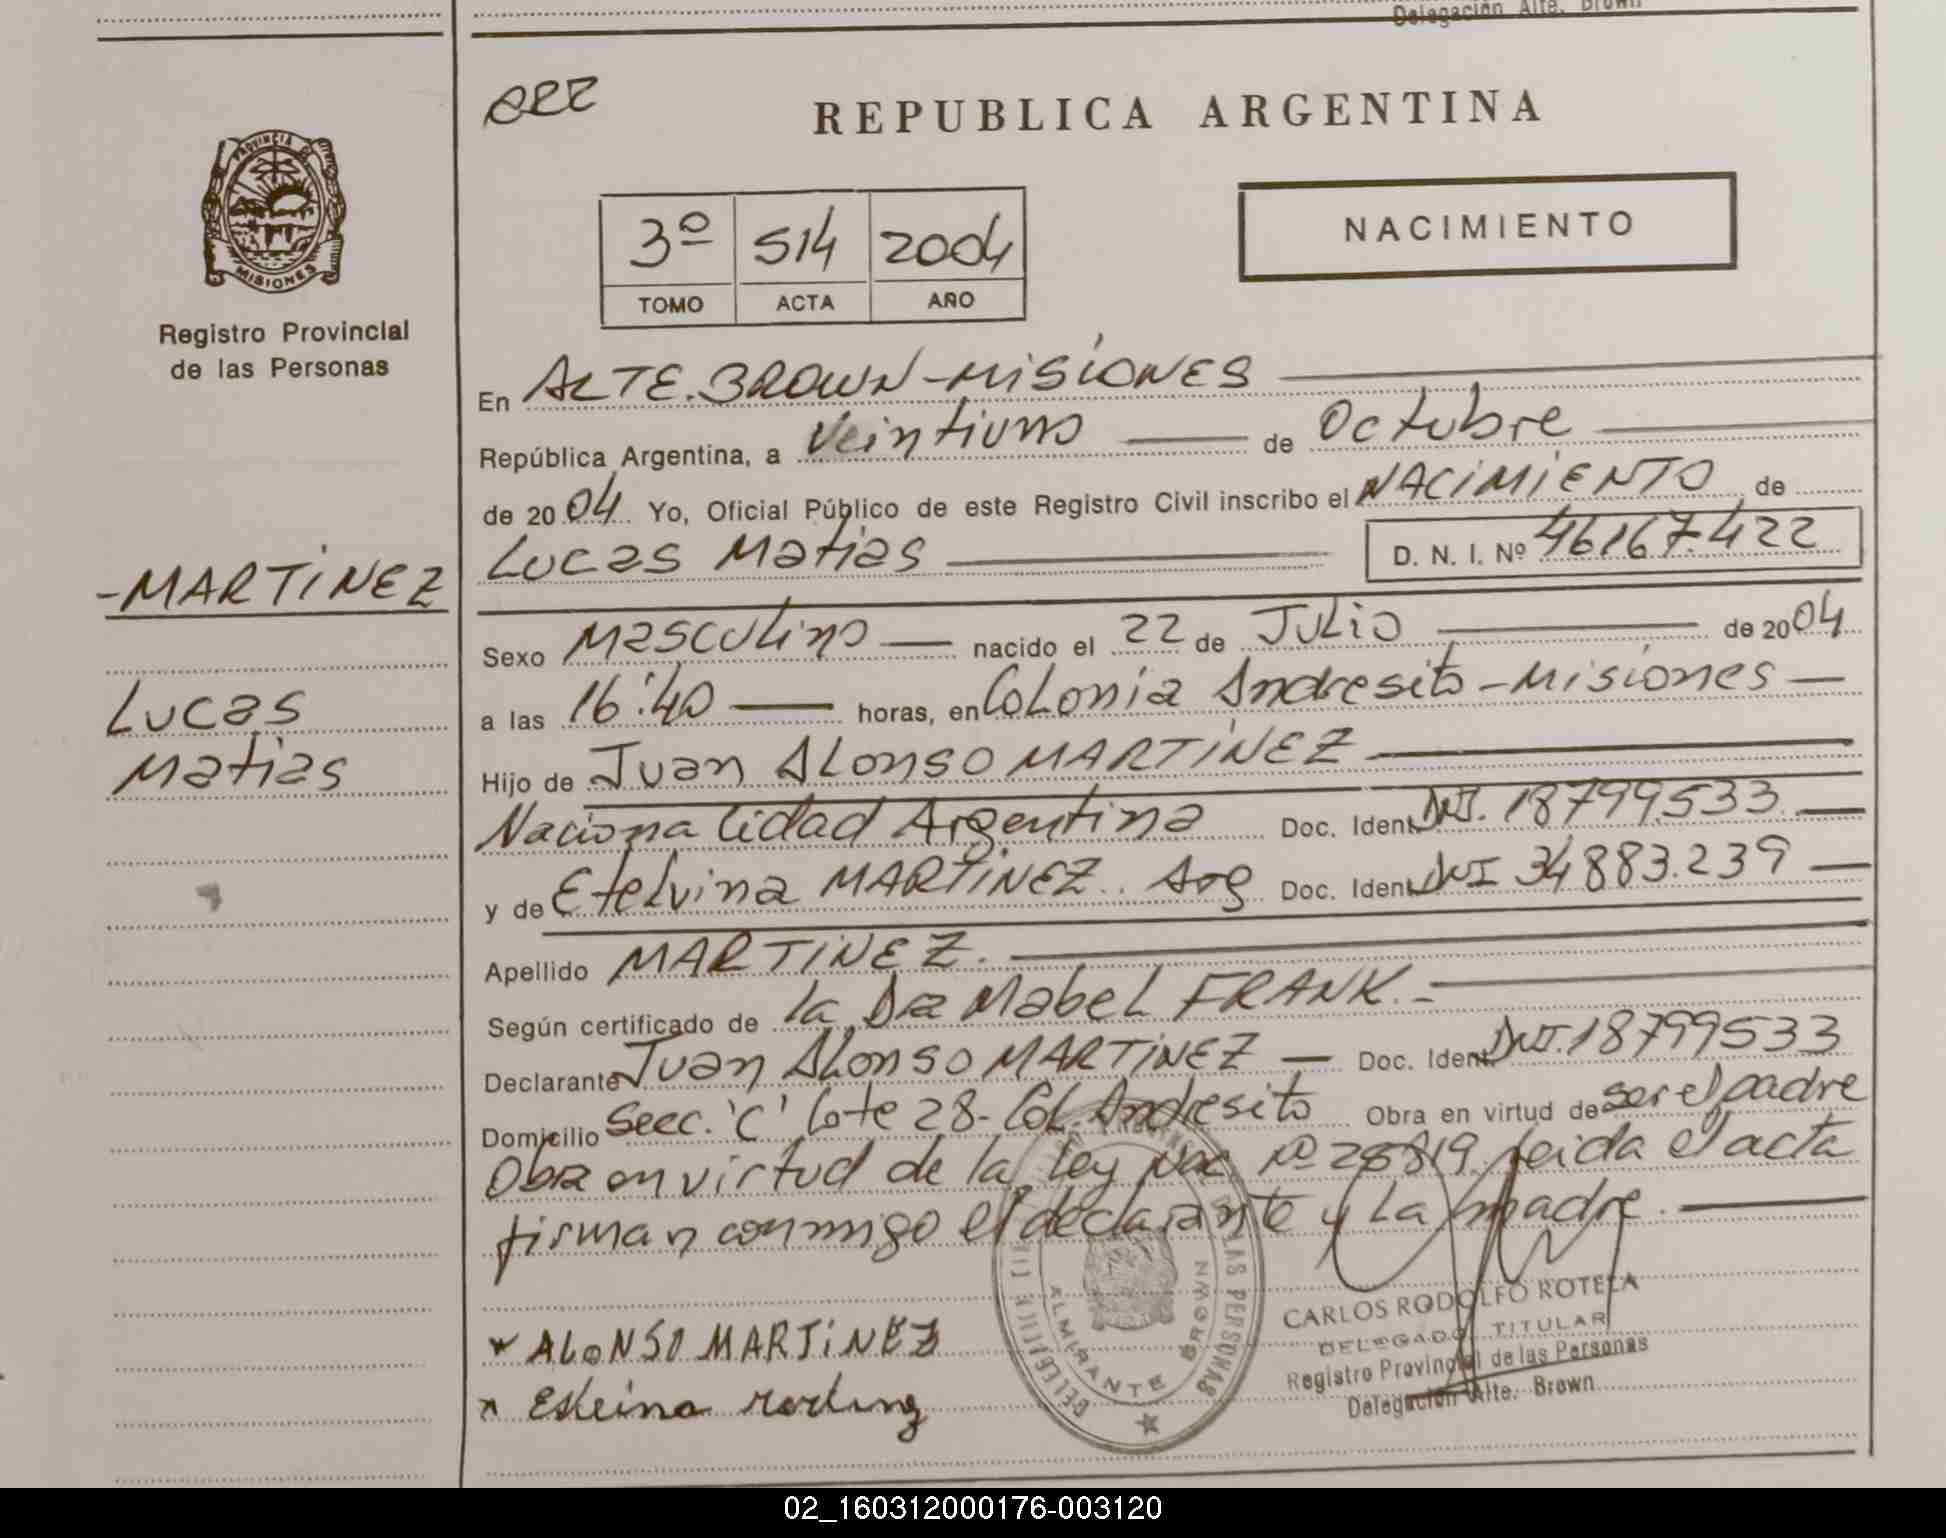 Delegación Alte. Brown
REPUBLICA ARGENTINA
PROVINCIA DE
MISIONES
Registro Provincial
de las Personas
3º 514 2004
TOMO ACTA AÑO
NACIMIENTO
En ALTE. BROWN - MISIONES
República Argentina, a Veintiuno de Octubre
de 2004 Yo, Oficial Público de este Registro Civil inscribo el NACIMIENTO de
Lucas Matias D. N. I. Nº 46167.422
-MARTINEZ
Lucas
Matias
Sexo Masculino nacido el 22 de Julio de 2004
a las 16:40 horas, en Colonia Andresito - Misiones
Hijo de Juan Alonso MARTINEZ
Nacionalidad Argentina Doc. Ident. DNI. 18799.533
y de Etelvina MARTINEZ. Arg Doc. Ident. DNI 34883.239
Apellido MARTINEZ.
Según certificado de la Dra Mabel FRANK.-
Declarante Juan Alonso MARTINEZ Doc. Ident. DNI. 18799533
Domicilio Secc. 'C' Lote 28- Col. Andresito Obra en virtud de ser el padre
Obra en virtud de la Ley Nac. Nº 25819. Leida el acta
firman conmigo el declarante y La madre.
ALONSO MARTINEZ
DE LAS PERSONAS
ALMIRANTE BROWN
CARLOS RODOLFO ROTELA
DELEGADO TITULAR
Registro Provincial de las Personas
Delegación Alte. Brown
02_160312000176-003120